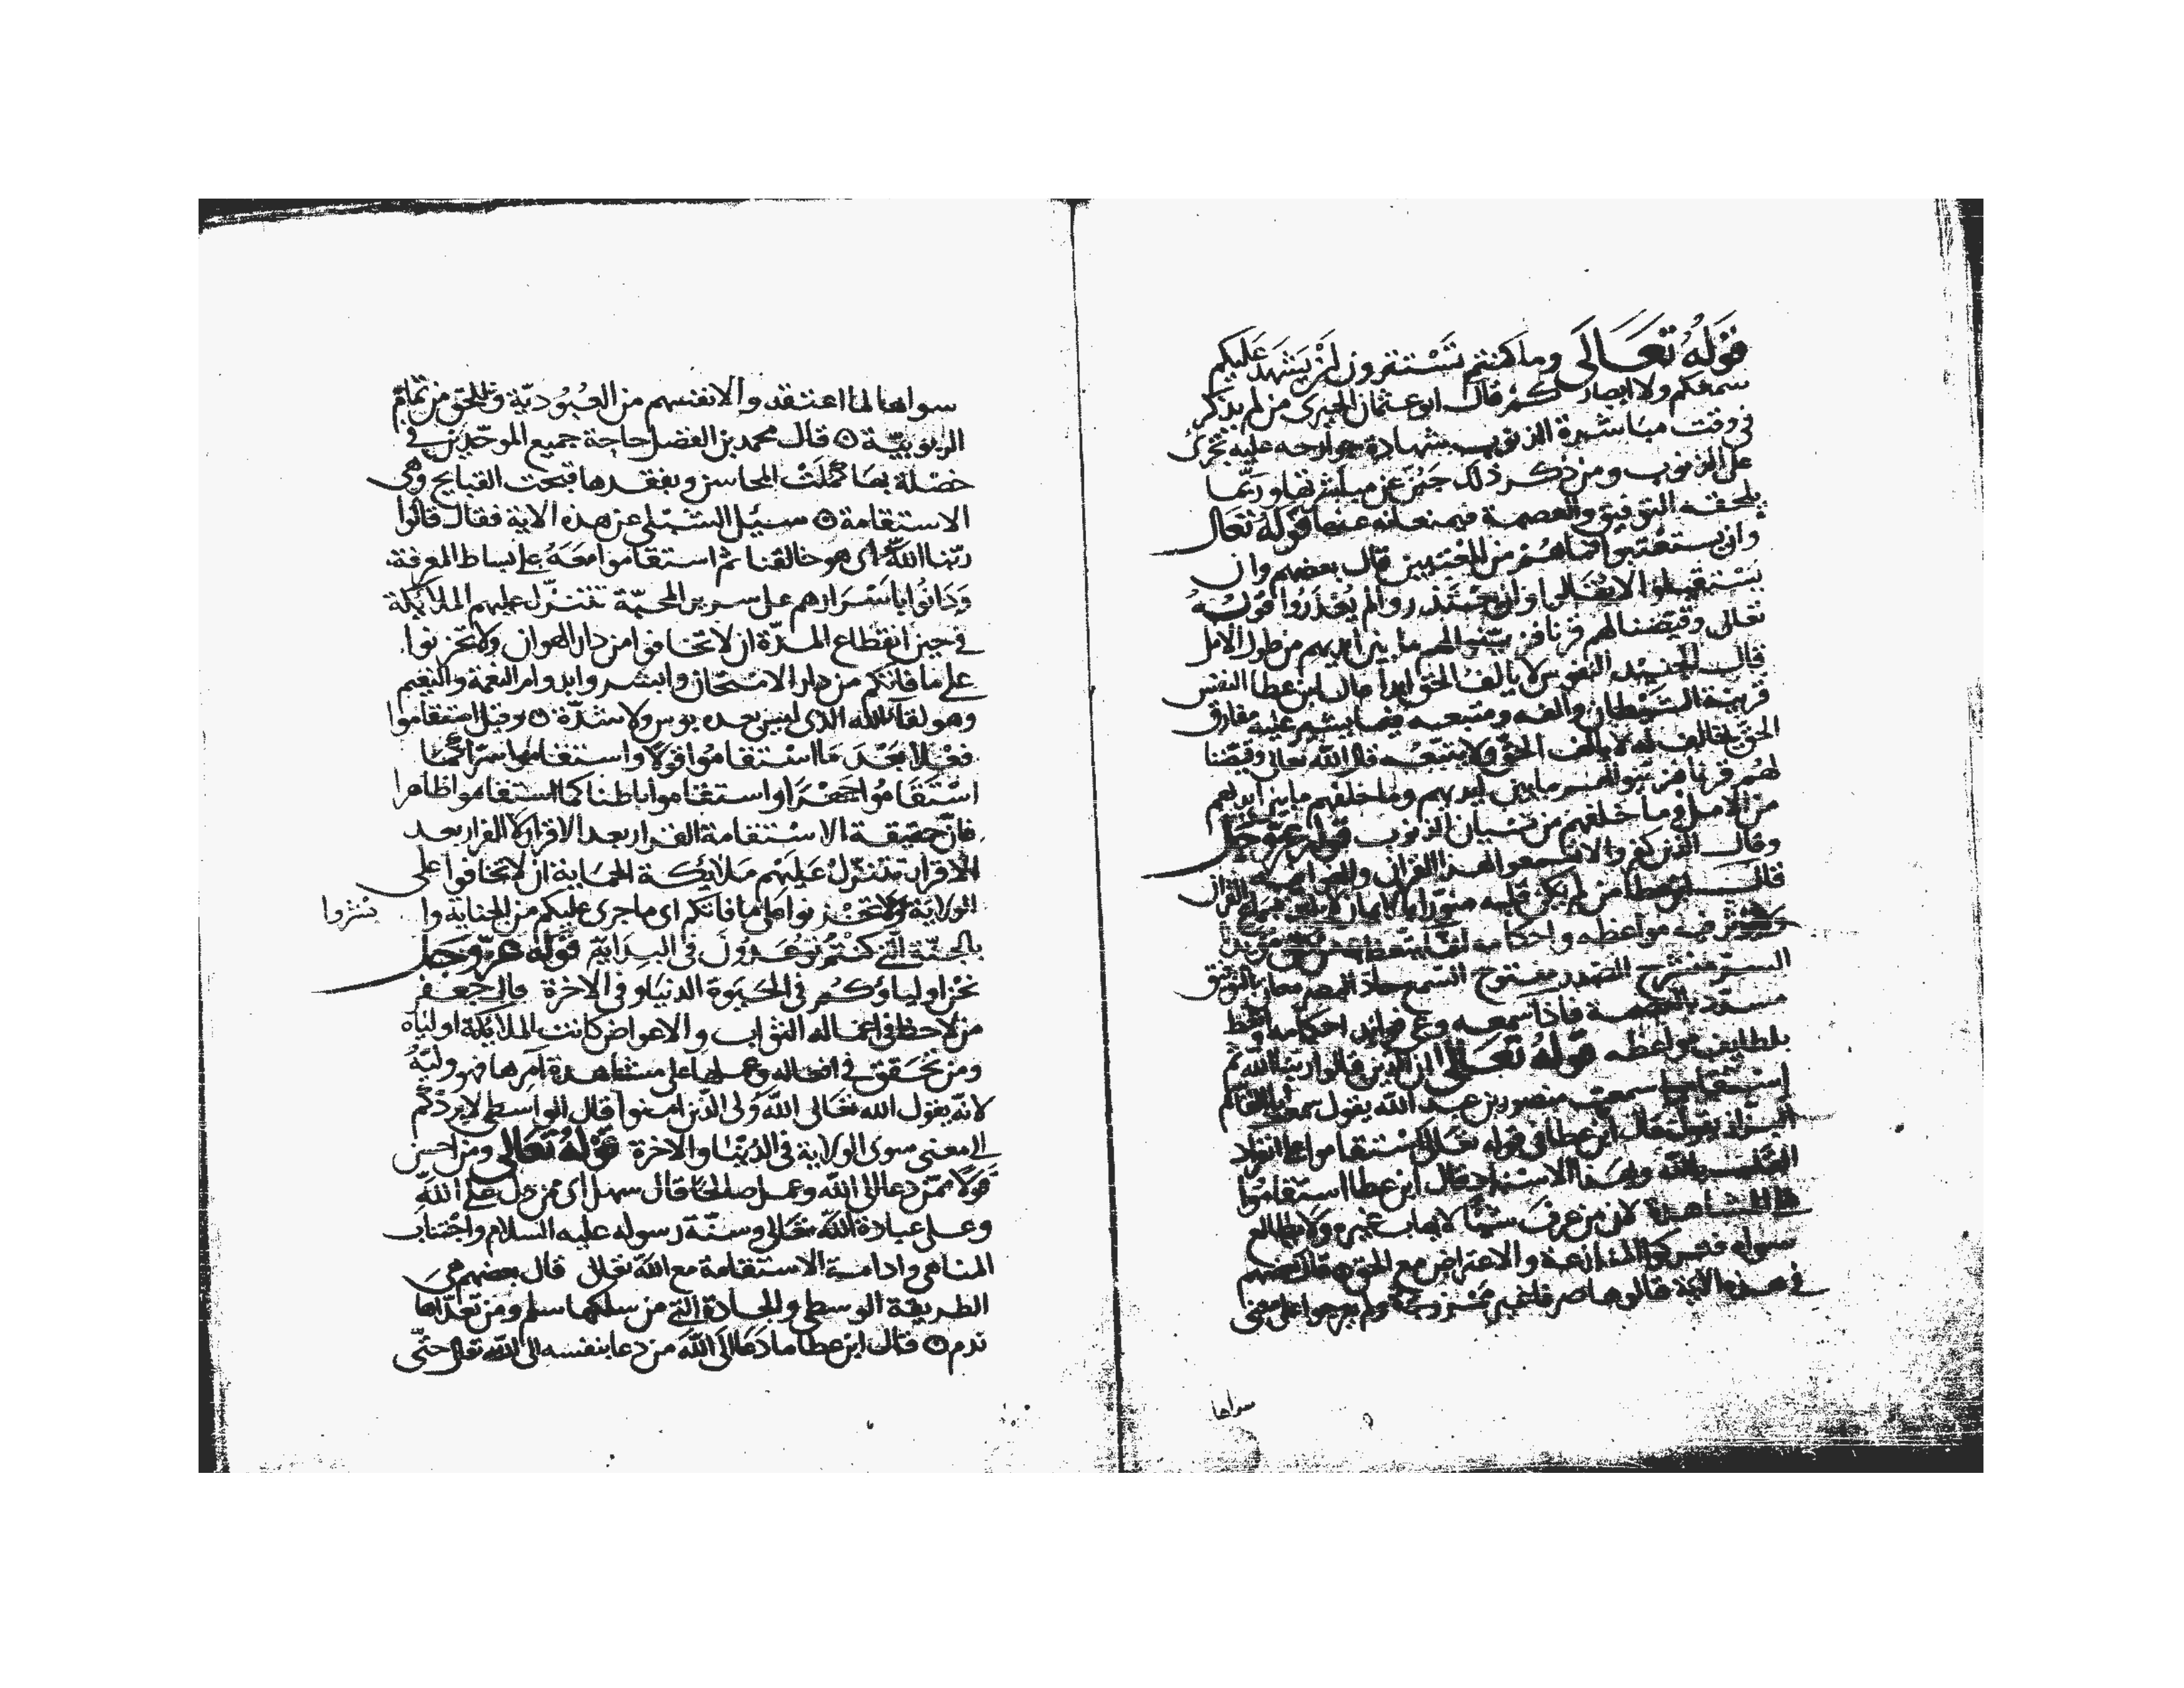 قوله تعالى وما كنتم تستترون أن يشهد عليكم
سمعكم ولا ابصاركم قال ابو عثمان الحيرى من لم يذكر
فى وقت مباشرة الذنوب شهادة جوارحه عليه تجرى
على الذنوب ومن ذكر ذلك جبن عن مباشرتها وربما
يلحقه التوفيق والعصمة فيمنعانه عنها قوله تعالى
وان يستعتبوا فما هم من المعتبين قال بعضهم وان
يستقيلوا لا يقالوا وان يعتذروا لم يعذروا قوله
تعالى وقيضنا لهم قرنا فزينوا لهم ما بين ايديهم من طول الامل
قال الجنيد النفوس لا يالف الحق ابدا قال ابن عطا النفس
قرينة الشيطان والفه ومتبعه فيما يشير عليه مفارق
الحق مخالف له لا يالف الحق ولا يتبعه قال الله تعالى وقيضنا
لهم قرنا فزينوا لهم ما بين ايديهم وما خلفهم ما بين ايديهم
من الامل وما خلفهم من نسيان الذنوب قوله عز وجل
وقال الذين كفروا لا تسمعوا لهذا القران والغوا فيه
قال ابن عطا من لم يكن قلبه منورا بالايمان لا سماع القران
فيه مواعظه واحكامه
السر منشرح الصدر مفتوح السمع حاد البصر معان بالتوفيق
مسدد بالعصمة فاذا سمعه وعى فوايد احكامه واتعظ
بلطايف مواعظه قوله تعالى ان الذين قالوا ربنا الله ثم
استقاموا سمعت منصور بن عبد الله يقول سمعت ابا القاسم
البزاز يقول قال ابن عطا فى قوله تعالى استقاموا على انفراد
القلب بالله قال ابن عطا استقاموا
على المشاهدة لان من عرف شيئا لا يهاب غيره ولا يطالع
سواه فتركوا المنازعة والاعتراض مع الحق قال بعضهم
فى هذه الاية ولم يرجوا على معنى
سواها
سواها لما اعتقدوا لانفسهم من العبودية وللحق من تمام
الربوبية ۞ قال محمد بن الفضل حاجة جميع الموحدين فى
خصلة بها كملت المحاسن وبفقدها قبحت القبايح وهى
الاستقامة ۞ سئل الشبلى عن هذه الاية فقال قالوا
ربنا الله اى هو خالقنا ثم استقاموا معه على بساط المعرفة
وداموا باسرارهم على سرير المحبة تتنزل عليهم الملائكة
فى حين انقطاع المدة ان لا تخافوا من دار الهوان ولا تحزنوا
على ما فاتكم من دار الامتحان وابشروا بدوام النعمة والنعيم
وهو لقاء الله الذى ليس بعده بوس ولا شدة ۞ وقيل استقاموا
فعلا بعد ما استقاموا قولا واستقاموا سرا كما
استقاموا جهرا واستقاموا باطنا كما استقاموا ظاهرا
فان حقيقة الاستقامة الفرار بعد الاقرار لا الفرار بعد
الاقرار تتنزل عليهم ملائكة الحماية ان لا تخافوا على
الولاية ولا تحزنوا على ما فاتكم اى ما جرى عليكم من الجناية وا بشروا
بالجنة التى كنتم توعدون فى البداية قوله عز وجل
نحن اولياوكم فى الحيوة الدنيا وفى الاخرة قال جعفر
من لاحظ فى اعماله الثواب والاعواض كانت الملائكة اولياه
ومن تحقق فى افعاله وعملها على مشاهدة آمرها فهو وليه
لانه يقول الله تعالى الله ولى الذين امنوا قال الواسطى لا يردكم
الى معنى سوى الولاية فى الدنيا والاخرة قوله تعالى ومن احسن
قولا ممن دعا الى الله وعمل صالحا قال سهل اى من دل على الله
وعلى عبادة الله تعالى وسنة رسوله عليه السلام واجتناب
المناهى وادامة الاستقامة مع الله تعالى قال بعضهم هى
الطريقة الوسطى والجادة التى من سلكها سلم ومن تعداها
ندم ۞ قال ابن عطا ما دعا الى الله من دعا بنفسه الى الله تعالى حتى